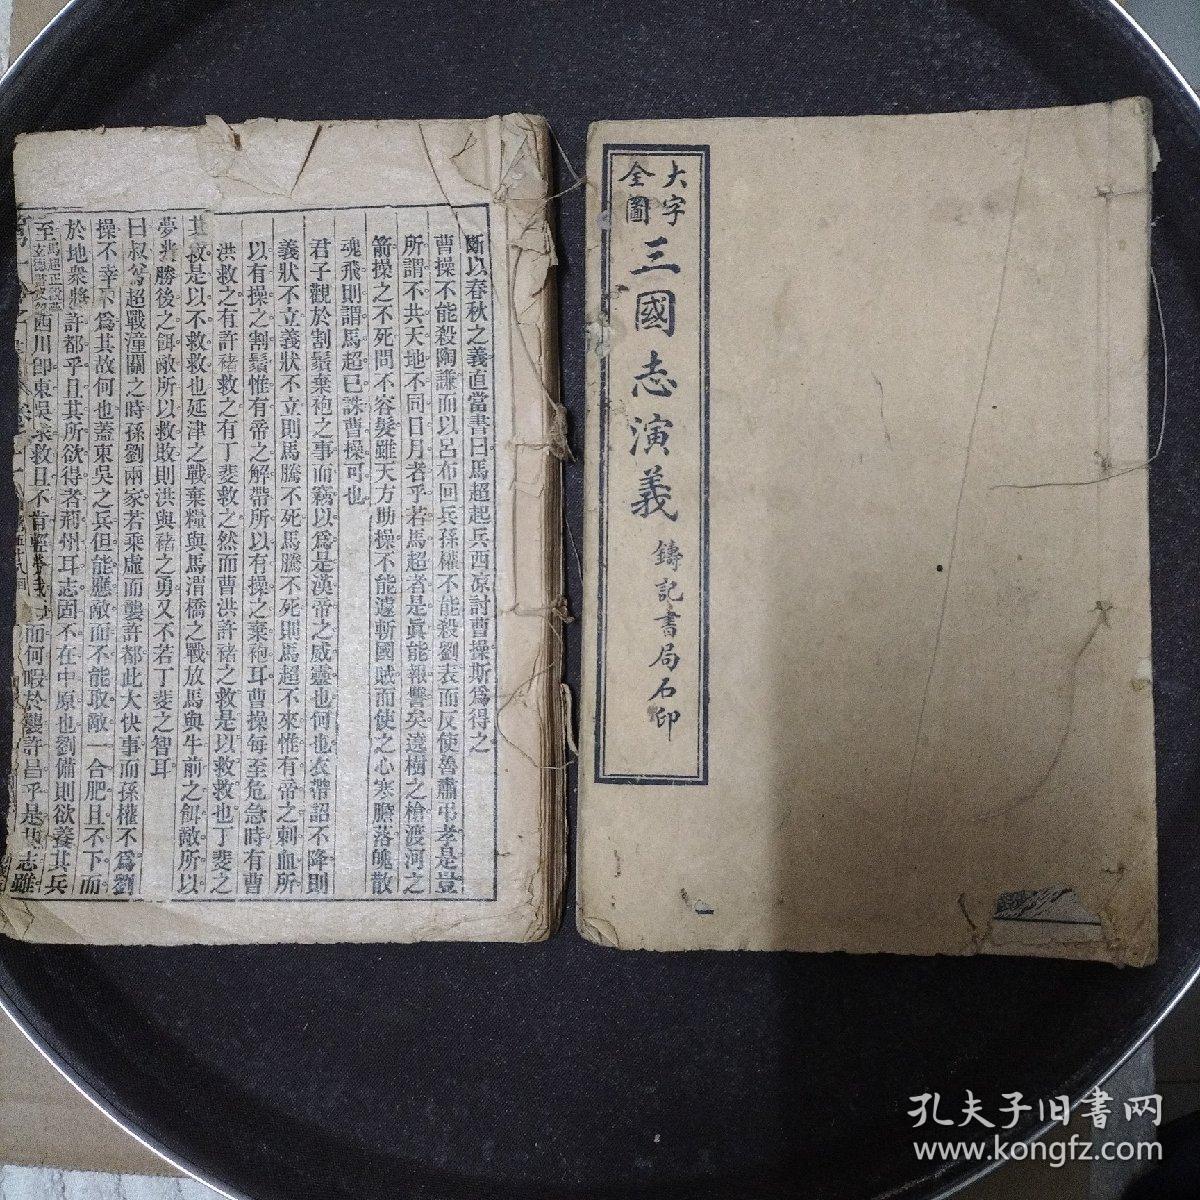 大字
全圖
三國志演義
鑄記書局石印
斷以春秋之義直當書曰馬超起兵西凉討曹操斯爲得之
曹操不能殺陶謙而以呂布回兵孫權不能殺劉表而反使魯肅弔孝是豈
所謂不共天地不同日月者乎若馬超者是眞能報讐矣遶樹之槍渡河之
箭操之不死問不容髮雖天方助操不能遽斬國賊而使之心寒膽落魄散
魂飛則謂馬超已誅曹操可也
君子觀於割鬚棄袍之事而竊以爲是漢帝之威靈也何也衣帶詔不降則
義狀不立義狀不立則馬騰不死馬騰不死則馬超不來惟有帝之刺血所
以有操之割鬚惟有帝之解帶所以有操之棄袍耳曹操每至危急時有曹
洪救之有許褚救之有丁斐救之然而曹洪許褚之救是以救救也丁斐之
其救是以不救救也延津之戰棄糧與馬渭橋之戰放馬與牛前之餌敵所以
夢 勝後之餌敵所以救敗則洪與褚之勇又不若丁斐之智耳
曰叔 超戰潼關之時孫劉兩家若乘虛而襲許都此大快事而孫權不爲劉
操不幸 爲其故何也蓋東吳之兵但能應敵而不能取敵一合肥且不下而
於地衆將許都乎且其所欲得者荊州耳志固不在中原也劉備則欲養其兵
至 西川卽東吳求救且不肯輕 而何暇於襲許昌乎是其志雖
孔夫子旧书网
www.kongfz.com